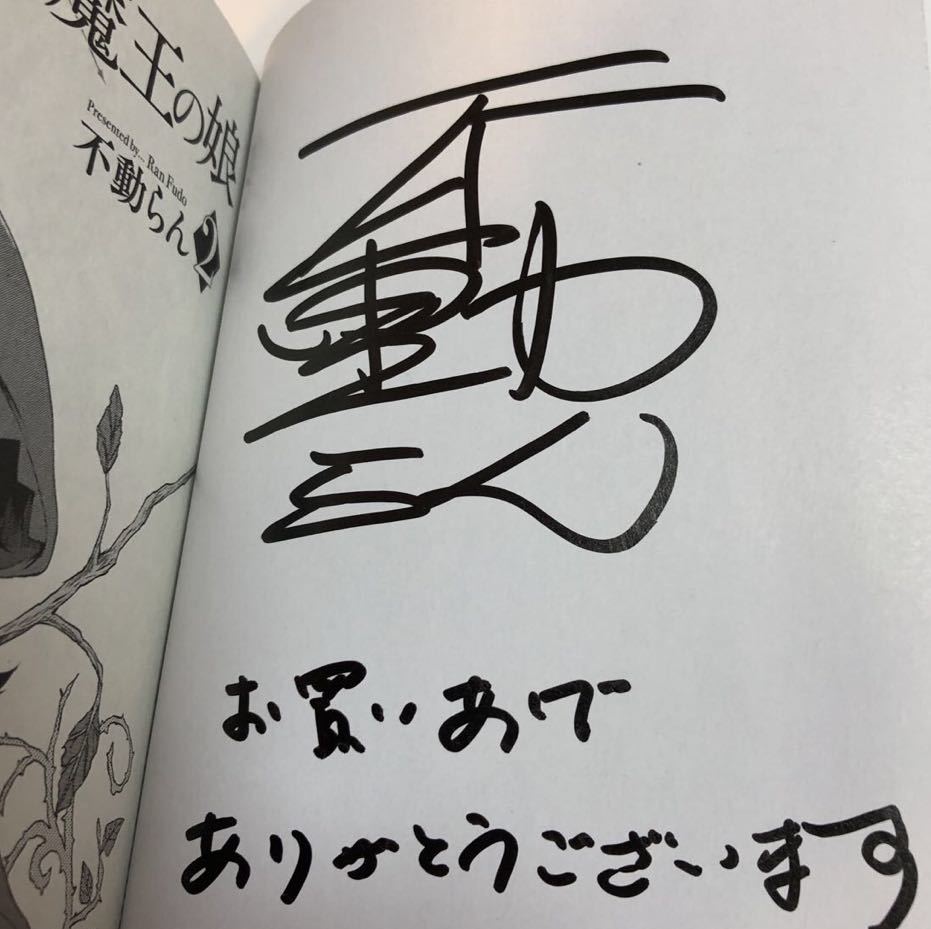 魔王の娘
Presented by... Ran Fudo
不動らん
2
不動
らん
お買いあげ
ありがとうございます